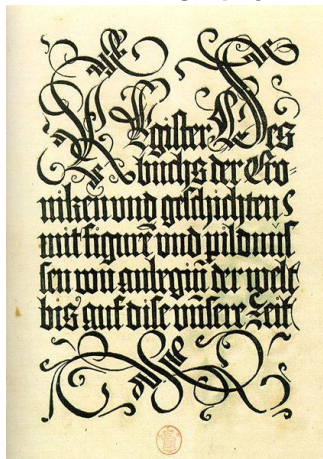 Register Des
buchs der Cro=
niken und geschichten
mit figurē und pildnus
sen von anbegiñ der welt
bis auf dise unnsere Zeit